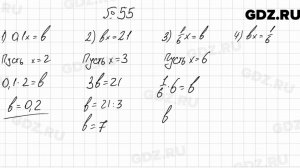 GDZ.RU
№ 55
1) 0,1x = в   2) вx = 21   3) 1/6 x = в   4) вx = 1/6
Пусть x = 2   Пусть x = 3   Пусть x = 6
0,1 · 2 = в   3в = 21   1/6 · 6 = в
в = 0,2   в = 21 : 3   в
в = 7
GDZ.RU